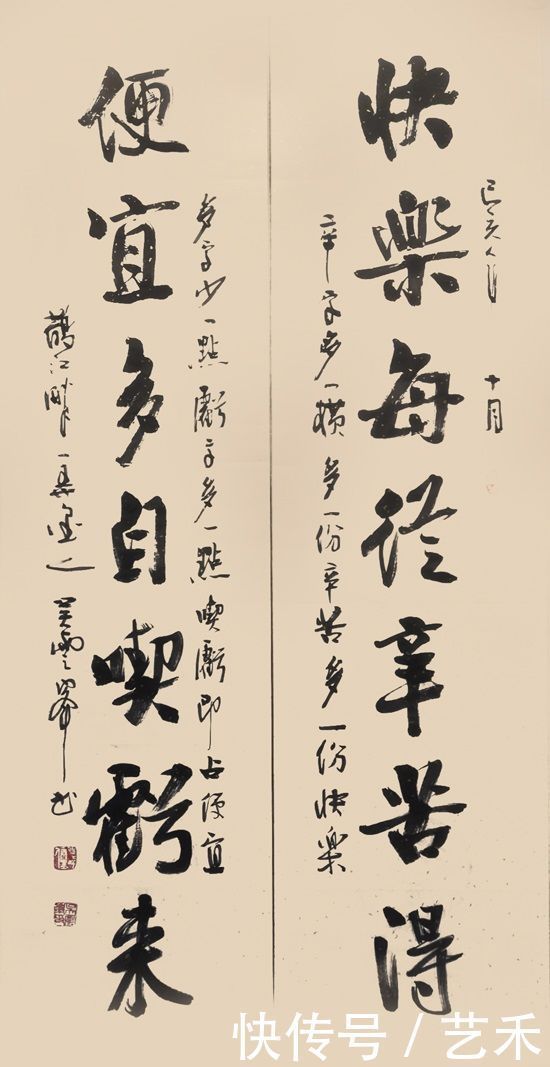 己亥
十月
快樂每從辛苦得
辛字多一横多一份辛苦多一份快樂
多字少一點虧字多一點喫虧即占便宜
便宜多自喫虧来
江畔一
快传号 / 艺禾